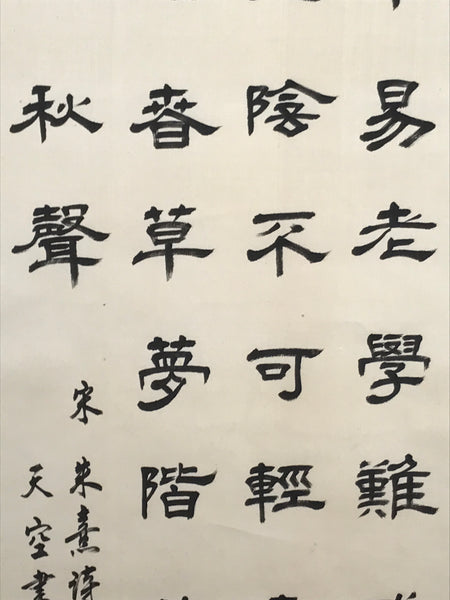 易老學難
陰不可輕
春草夢階
秋聲
宋 朱熹詩
天空書